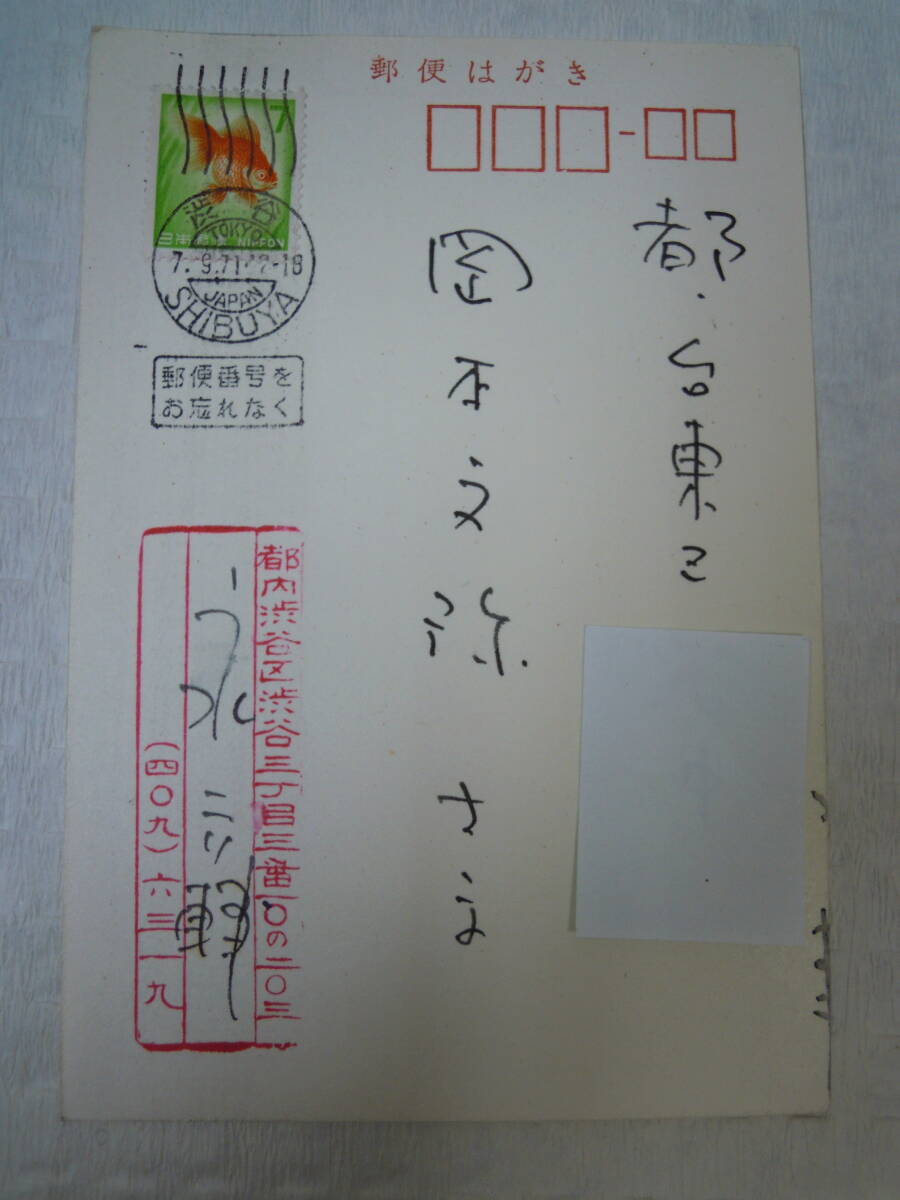 郵便はがき
7
日本郵便 NIPPON
渋谷
TOKYO
7.9.71 12-18
JAPAN
SHIBUYA
郵便番号を
お忘れなく
都・台東区
岡本文弥さま
都内渋谷区渋谷三丁目三番一〇の二〇三
永六輔
(四〇九)六三一九